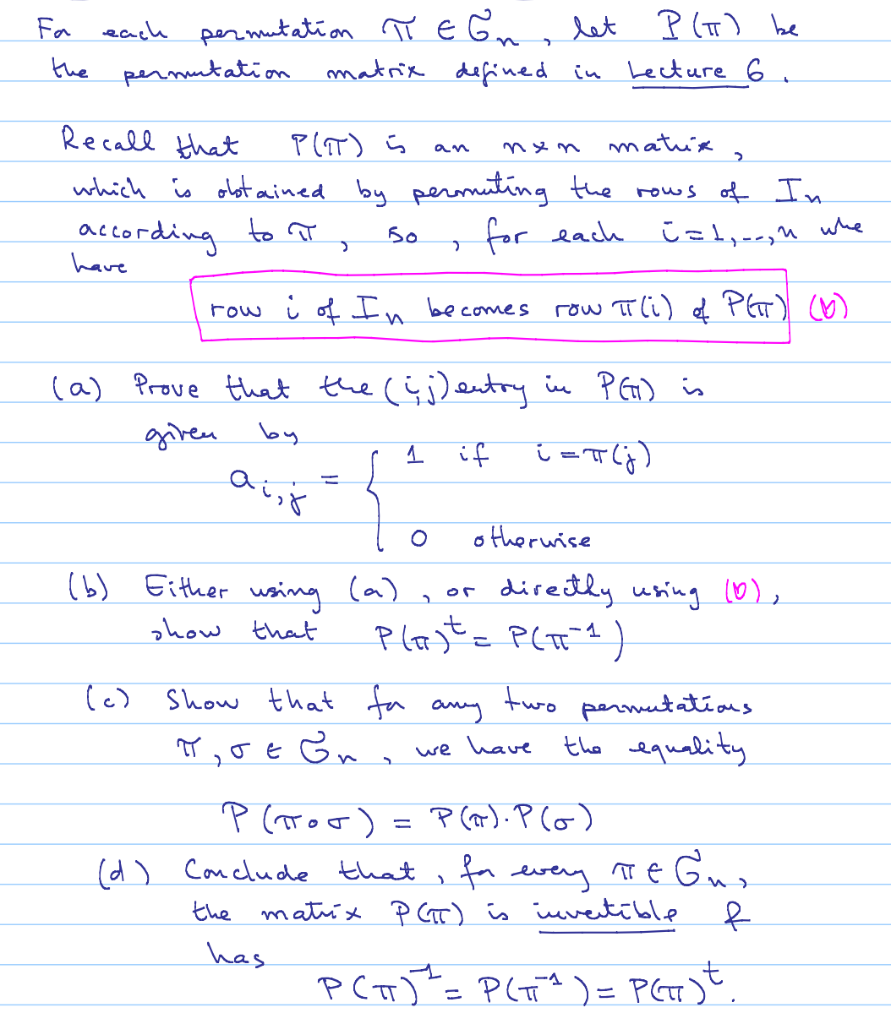 For each permutation π ∈ 𝔖n, let P(π) be
the permutation matrix defined in Lecture 6.
Recall that P(π) is an n×n matrix,
which is obtained by permuting the rows of In
according to π, so, for each i=1,--,n whe
have
row i of In becomes row π(i) of P(π) (b)
(a) Prove that the (i,j) entry in P(π) is
given by
ai,j = { 1 if i = π(j)
0 otherwise
(b) Either using (a), or directly using (b),
show that P(π)^t = P(π^-1)
(c) Show that for any two permutations
π, σ ∈ 𝔖n, we have the equality
P(π∘σ) = P(π)·P(σ)
(d) Conclude that, for every π ∈ 𝔖n,
the matrix P(π) is invertible &
has
P(π)^-1 = P(π^-1) = P(π)^t.